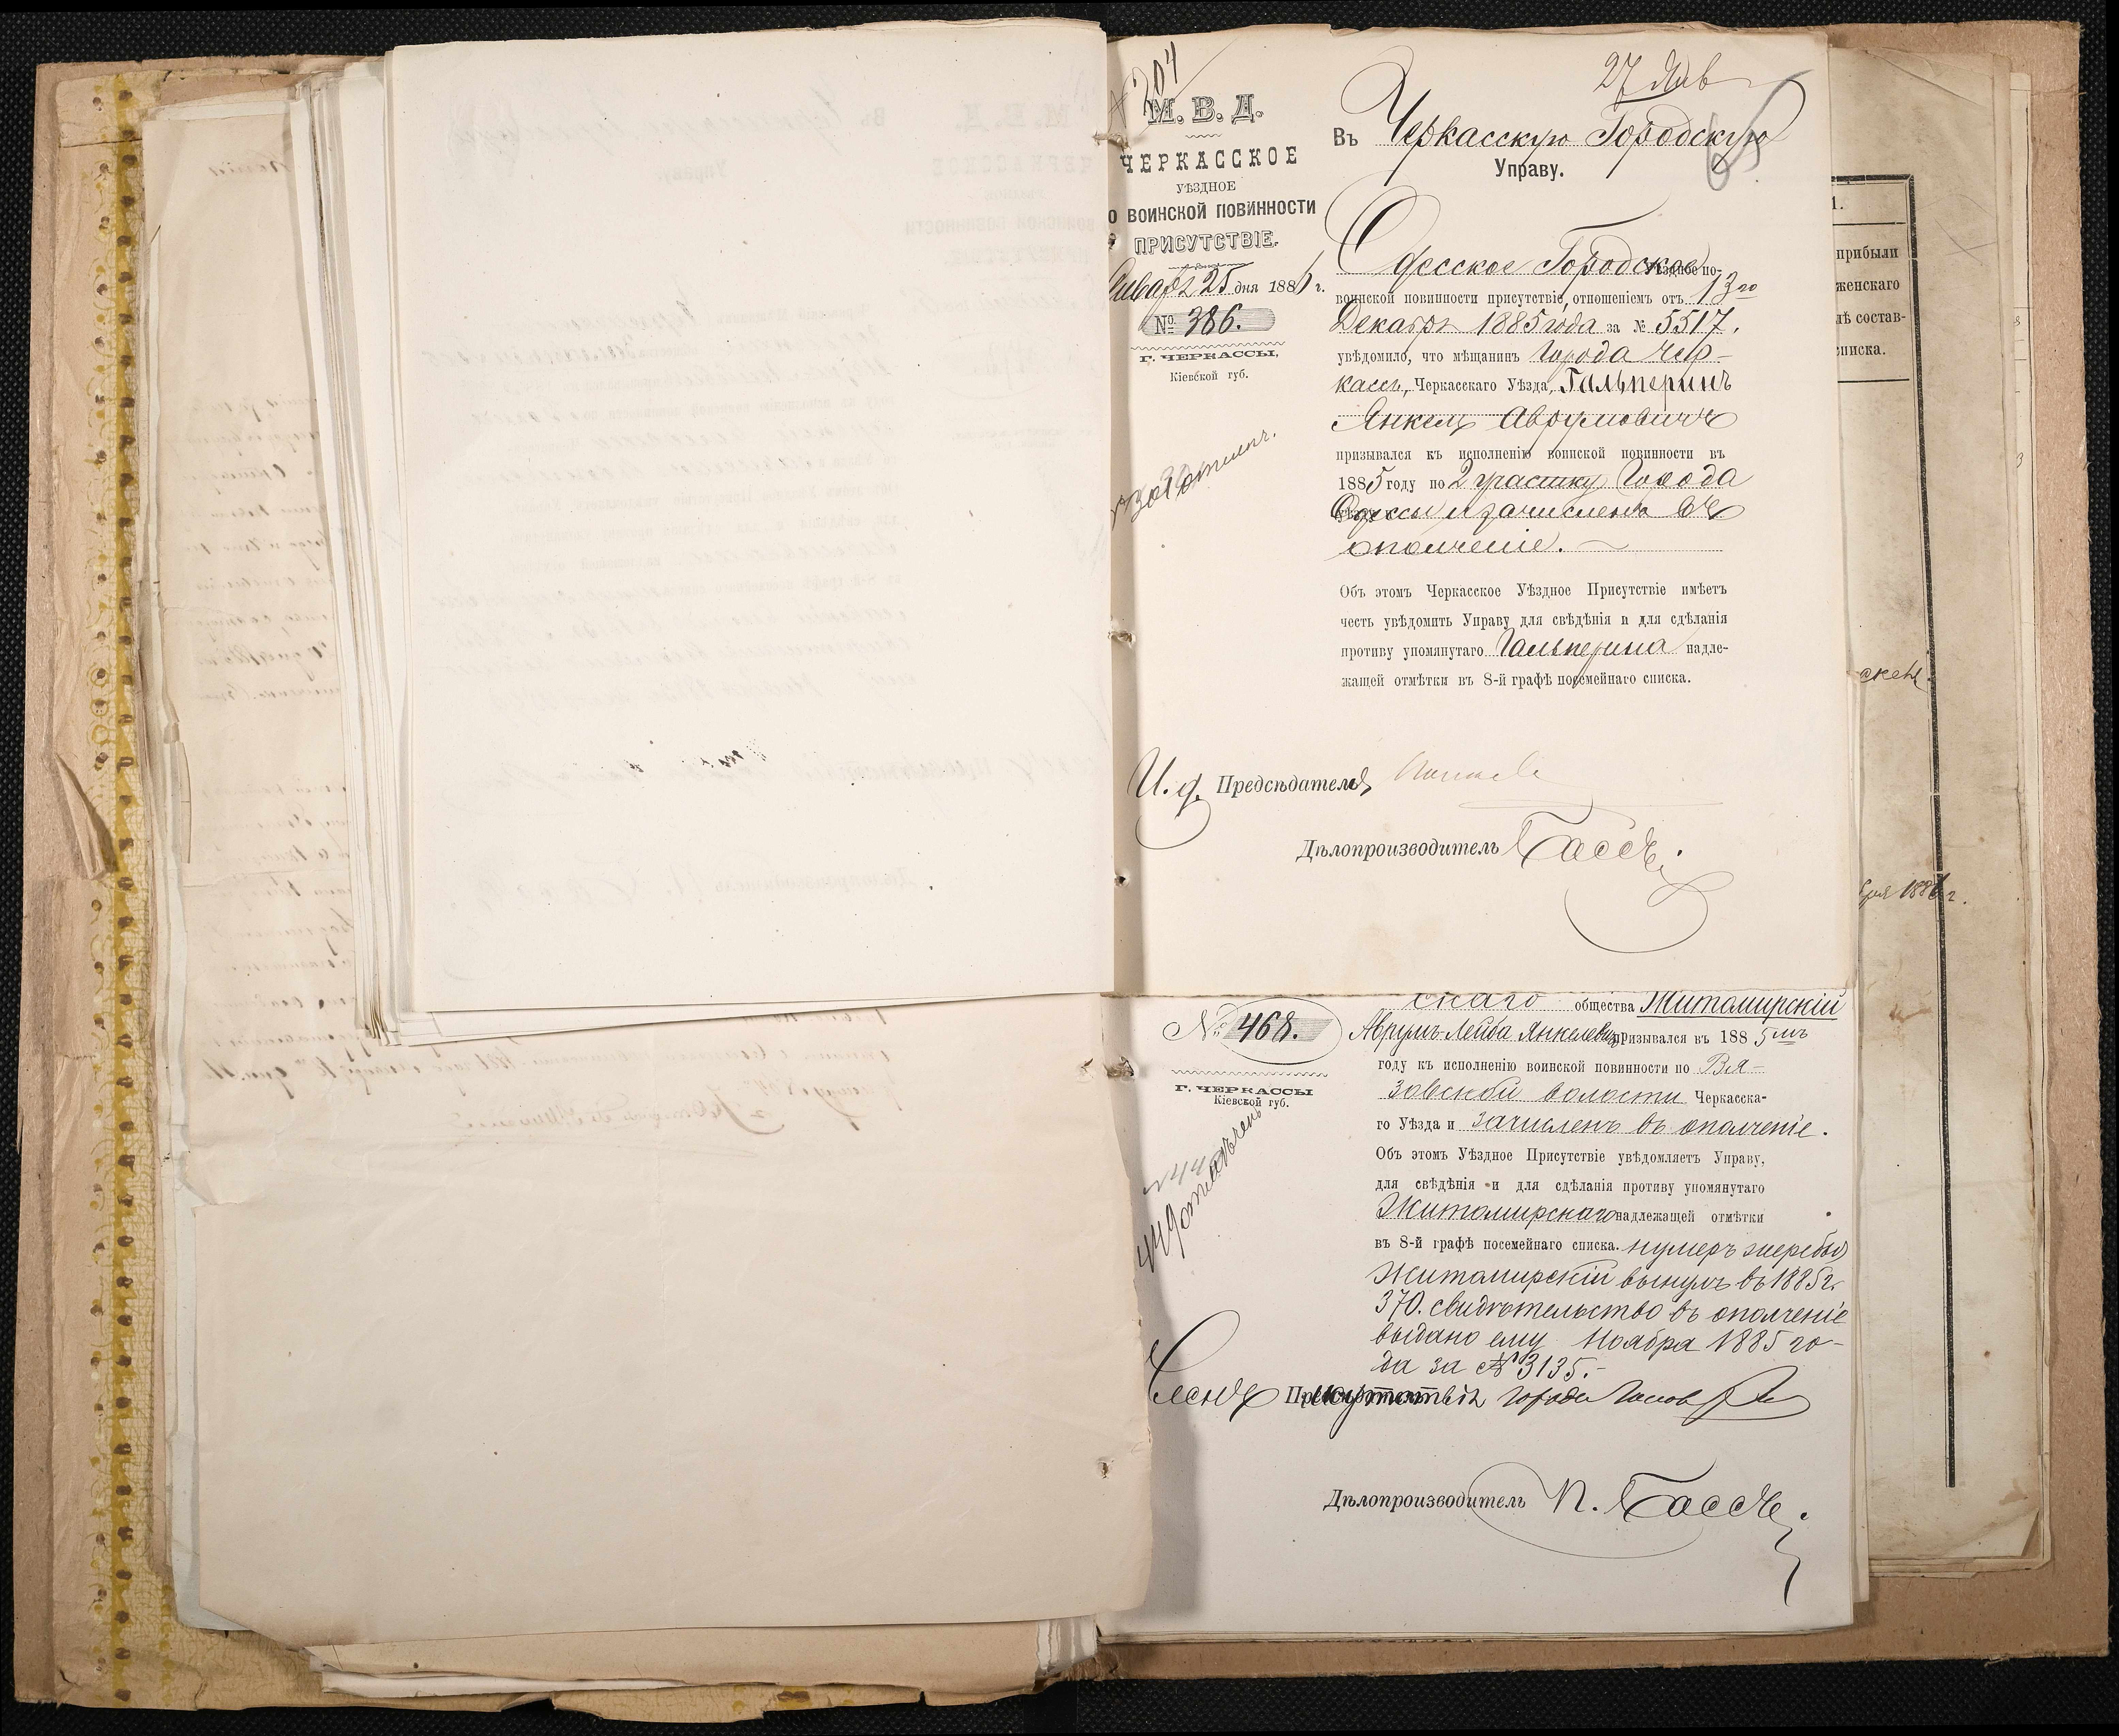 204
М. В. Д.
ЧЕРКАССКОЕ
УѢЗДНОЕ
О ВОИНСКОЙ ПОВИННОСТИ
ПРИСУТСТВІЕ.
Января 25 дня 1886 г.
№ 386.
Г. ЧЕРКАССЫ,
Кіевской губ.
27 Янв
Въ Черкасскую Городскую
Управу.
65
Одесское Городское по
воинской повинности присутствіе, отношеніемъ отъ 13го
Декабря 1885 года за № 5517,
увѣдомило, что мѣщанинъ города Чер-
кассъ, Черкасскаго Уѣзда, Гальперинъ
Янкель Аврумовичъ
призывался къ исполненію воинской повинности въ
1885 году по 2 участку Города
Одессы и зачисленъ въ
ополченіе.
Объ этомъ Черкасское Уѣздное Присутствіе имѣетъ
честь увѣдомить Управу для свѣдѣнія и для сдѣланія
противу упомянутаго Гальперина надле-
жащей отмѣтки въ 8-й графѣ посемейнаго списка.
И. д. Предсѣдателя
Дѣлопроизводитель Бассъ.
скаго общества Житомирскій
№ 468.
Аврумъ-Лейба Янкелевъ призывался въ 1885мъ
году къ исполненію воинской повинности по Вя-
зовской волости Черкасска-
го Уѣзда и зачисленъ въ ополченіе.
Объ этомъ Уѣздное Присутствіе увѣдомляетъ Управу,
для свѣдѣнія и для сдѣланія противу упомянутаго
Житомирскаго надлежащей отмѣтки
въ 8-й графѣ посемейнаго списка. нумеръ жеребья
Житомирскій вынулъ въ 1885 г.
370. свидѣтельство въ ополченіе
выдано ему Ноября 1885 го-
да за № 3135.
Г. ЧЕРКАССЫ
Кіевской губ.
449 отмѣченъ
Членъ Присутствія города
Дѣлопроизводитель П. Бассъ.
1.
прибыли
женскаго
лѣ состав-
списка.
бря 1886 г.